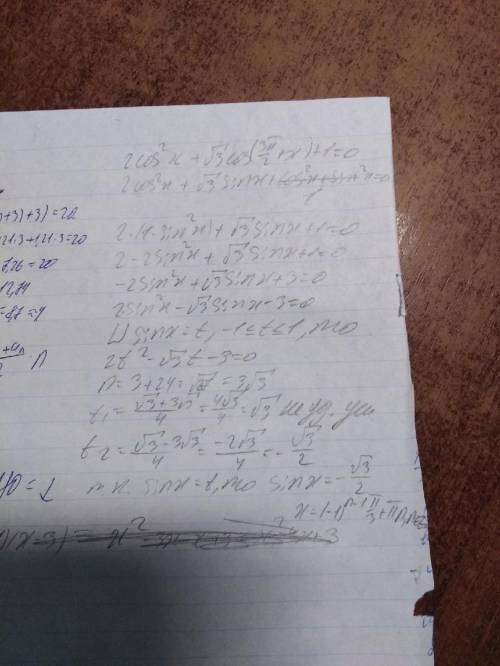 2cos²x + √3cos(3π/2 + x) + 1 = 0
2cos²x + √3sinx + cos²x + sin²x = 0
1
2·(1 - sin²x) + √3sinx + 1 = 0
2 - 2sin²x + √3sinx + 1 = 0
-2sin²x + √3sinx + 3 = 0
2sin²x - √3sinx - 3 = 0
sinx = t, -1 ≤ t ≤ 1, то
2t² - √3t - 3 = 0
D = 3 + 24 = √27 = 3√3
t₁ = (√3 + 3√3)/4 = 4√3/4 = √3 не уд. усл.
t₂ = (√3 - 3√3)/4 = -2√3/4 = -√3/2
т.к. sinx = t, то sinx = -√3/2
+3)+3) = 20
·3 = 20
= 20